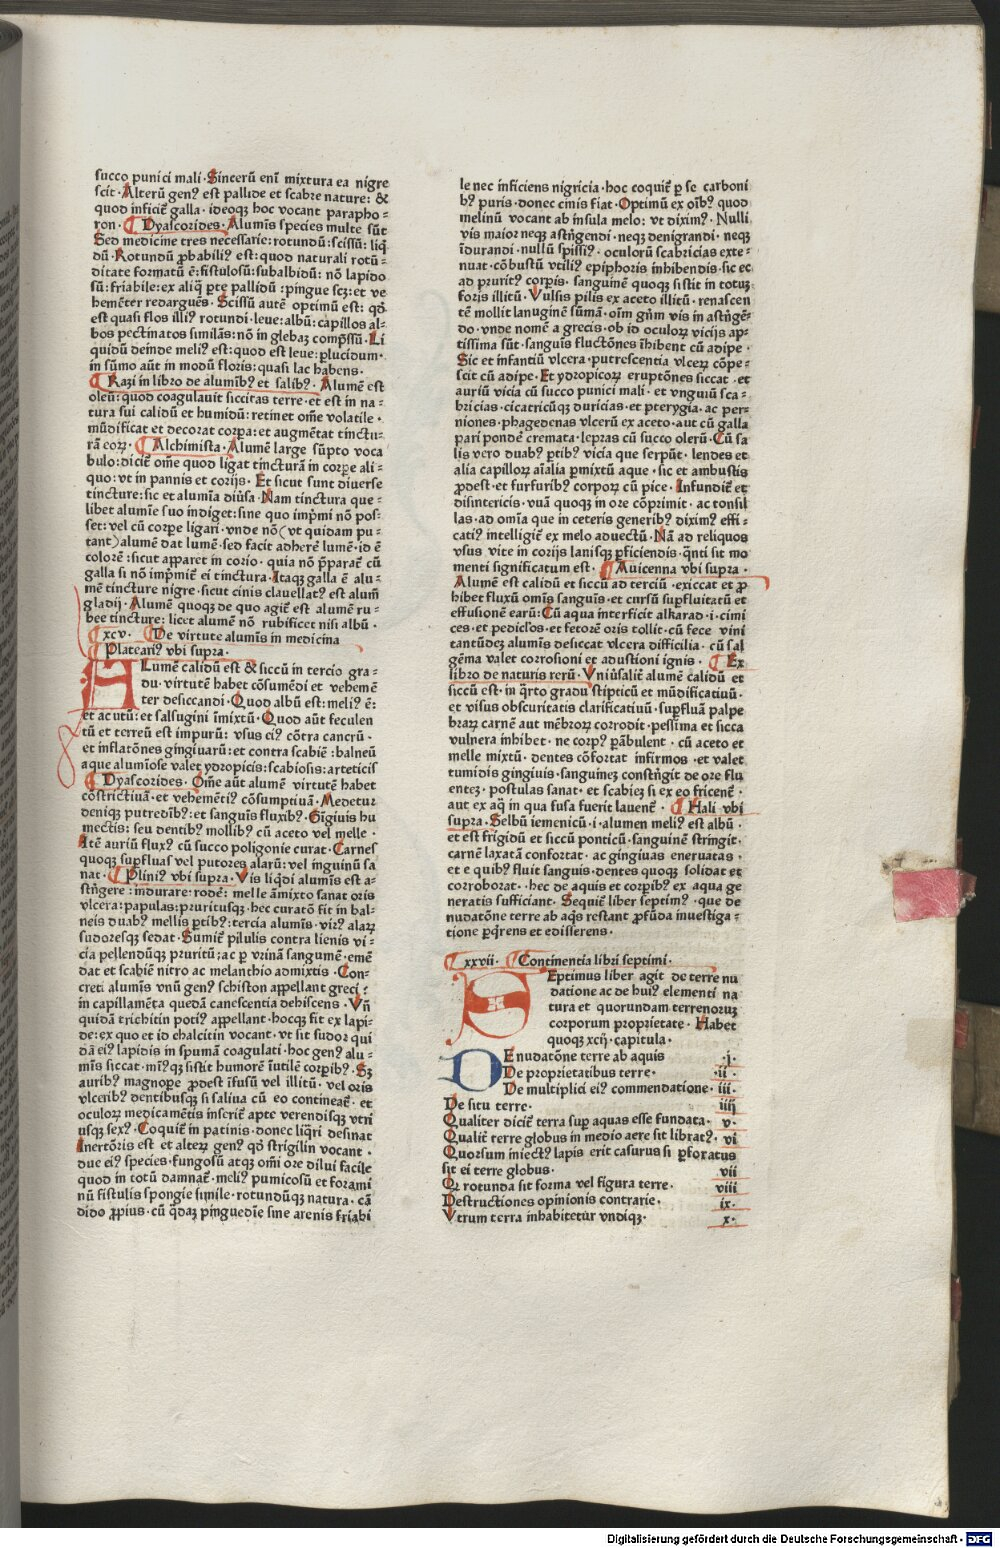 succo punici mali·Sincerū enī mixtura ea nigre
scit·Alterū genꝰ est pallide et scabre nature: &
quod inficiē galla·ideoqꝫ hoc vocant parapho⸗
ron·¶ Dyascorides·Alumīs species multe sūt
Sed medicine tres necessarie:rotundū:scissū:liq̇
dū·Rotundū ꝓbabiliꝰ est:quod naturali rotū⸗
ditate formatū ē:fistulosū:subalbidū: nō lapido
sū:friabile:ex aliq̇ ꝑte pallidū:pingue scꝫ:et ve
hemēter redarguēs·Scissū autē optimū est: qḋ
est quasi flos illiꝰ rotundi·leue:albū:capillos al⸗
bos pectinatos similās:nō in glebaꝫ compssū·Li
quidū deinde meliꝰ est:quod est leue:ꝑlucidum·
in sūmo aūt in modū floris:quasi lac habens·
¶ Razi in libro de aluminibꝰ et salibꝰ·Alumē est
oleū:quod coagulauit siccitas terre·et est in na⸗
tura sui calidū et humidū:retinet om̄e volatile·
mūdificat et decorat corpa:et augmētat tinctu⸗
rā eoꝝ·¶ Alchimista·Alumē large sūpto voca
bulo:dicit̄ om̄e quod ligat tincturā in corpe ali⸗
quo:vt in pannis et corijs·Et sicut sunt diuerse
tincture:sic et alumīa diūsa·Nam tinctura que⸗
libet alumīe suo indiget:sine quo imp̄mi nō pos⸗
set:vel cū corpe ligari·vnde nō(vt quidam pu⸗
tant)alumē dat lumē·sed facit adherē lumē·id ē
colorē:sicut apparet in corio·quia nō p̄pararet cū
galla si nō imp̄mit̄ ei tinctura·Itaqꝫ galla ē alu⸗
mē tincture nigre·sicut cinis clauellatꝰ est alum̄
gladij·Alumē quoqꝫ de quo agit̄ est alumē ru⸗
bee tincture:licet alumē nō rubificet nisi albū·
¶ xcv·¶ De virtute alumīs in medicina
¶ Plateariꝰ vbi supra·
ALumē calidū est & siccū in tercio gra⸗
du·virtutē habet cōsumēdi et vehemē
ter desiccandi·Quod albū est:meliꝰ ē:
et acutū:et salsugini īmixtū·Quod aūt feculen
tū et terreū est impurū: vsus eiꝰ cōtra cancrū·
et inflatōnes gingiuarū:et contra scabiē:balneū
aque alumīose valet ydropicis:scabiosis:arteticis
¶ Dyascorides·Om̄e aūt alumē virtutē habet
cōstrictiuā·et vehemētiꝰ cōsumptiuā·Medetur
deniqꝫ putredībꝰ:et sanguīs fluxibꝰ·Gīgiuis hu
mectis: seu dentibꝰ mollibꝰ cū aceto vel melle·
Itē auriū fluxꝰ cū succo poligonie curat·Carnes
quoqꝫ supfluas vel putores alarū:vel inguinū sa
nat·¶ Pliniꝰ vbi supra·Vis liq̇di alumīs est a⸗
strīgere:indurare:rodē: melle āmixto sanat oris
vlcera:papulas:pruritusqꝫ·hec curatō fit in bal⸗
neis duabꝰ mellis ptibꝰ:tercia alumīs·virꝰ alaꝝ
sudoresqꝫ sedat·Sumit̄ pilulis contra lienis vi⸗
cia pellendūqꝫ pruritū:ac p vrinā sangumē·emē
dat et scabiē nitro ac melanthio admixtis·Con⸗
creti alumīs vnū genꝰ schiston appellant greci:
in capillamēta quedā canescentia dehiscens·Vn̄
quidā trichitin potiꝰ appellant·hocqꝫ fit ex lapi⸗
de:ex quo et id chalcitin vocant·vt sit sudor qui
dā eiꝰ lapidis in spumā coagulati·hoc genꝰ alu⸗
mīs siccat·minꝰqꝫ sistit humorē īutilē corpibꝰ·Sꝫ
auribꝰ magnope ꝓdest īfusū vel illitū·vel oris
vlceribꝰ dentibusqꝫ si saliua cū eo contineat̄·et
oculoꝝ medicamētis inserit̄ apte verendisqꝫ vtri
usqꝫ sexꝰ·Coquit̄ in patinis·donec liq̇ri desinat
Inertōris est et alteꝝ genꝰ qḋ strigilin vocant·
due eiꝰ species·fungosū atqꝫ om̄i ore dilui facile
quod in totū damnat̄·meliꝰ pumicosū et forami
nū fistulis spongie simile·rotundūqꝫ natura·cā
dido ꝓpius·cū q̇daꝫ pinguedīe sine arenis friabi
le nec inficiens nigricia·hoc coquit̄ ꝑ se carboni
bꝰ puris·donec cinis fiat·Optimū ex oībꝰ quod
melinū vocant ab insula melo: vt diximꝰ·Nulli
vis maior neqꝫ astrīgendi·neqꝫ denigrandi·neqꝫ
īdurandi·nullū spissiꝰ·oculorū scabricias exte⸗
nuat·cōbustū vtiliꝰ epiphoris inhibendis·sic et
ad pruritꝰ corpis·sanguinē quoqꝫ sistit in totuꝫ
foris illitū·Vulsis pilis ex aceto illitū·renascen
tē mollit lanuginē sūmā·oīm gn̄m vis in astrīgē⸗
do·vnde nomē a grecis·ob id oculoꝝ vicijs ap⸗
tissima sūt·sanguīs fluctōnes īhibent cū adipe·
Sic et infantiū vlcera·putrescentia vlceꝝ cōpe⸗
scit cū adipe·Et ydropicoꝝ eruptōnes siccat·et
auriū vicia cū succo punici mali·et vnguiū sca⸗
bricias·cicatricūqꝫ duricias·et pterygia·ac per⸗
niones·phagedenas vlcerū ex aceto·aut cū galla
pari ponderē cremata·lepras cū succo olerū·Cū sa
lis vero duabꝰ ꝑtibꝰ vicia que serpūt·lendes et
alia capilloꝝ aīalia ꝑmixtū aque·sic et ambustis
ꝓdest·et furfuribꝰ corpoꝝ cū pice·Infundit̄ et
disintericis·vuā quoqꝫ in ore cōprimit·ac tonsil
las·ad omīa que in ceteris generibꝰ diximꝰ effi⸗
catiꝰ intelligit̄ ex melo aduectū·Nā ad reliquos
vsus vite in corijs lanisqꝫ ꝑficiendis·q̄nti sit mo
menti significatum est·¶ Auicenna vbi supra·
Alumē est calidū et siccū ad terciū·exiccat et ꝓ
hibet fluxū omīs sanguīs·et cursū supfluitatū et
effusionē earū:Cū aqua interficit alkarad·i·cimi
ces·et pediclos·et fetorē oris tollit·cū fece vini
tantūdeꝫ alumīs desiccat vlcera difficilia·cū sal
gēma valet corrosioni et adustioni ignis·¶ Ex
libro de naturis rerū·Vniūsalit̄ alumē calidū et
siccū est·in q̇rto gradu stipticū et mūdificatiuū·
et visus obscuritatis clarificatiuū·supfluā palpe
braꝝ carnē aut mēbroꝝ corrodit·pessīma et sicca
vulnera inhibet·ne corpꝰ pābulent·cū aceto et
melle mixtū·dentes cōfortat infirmos·et valet
tumidis gingiuis·sanguineꝫ constrīgit de ore flu
enteꝫ·postulas sanat·et scabieꝫ si ex eo fricent̄·
aut ex aq̇ in qua fusa fuerit lauent̄·¶ Hali vbi
supra·Selbū iemenicū·i·alumen meliꝰ est albū·
et est frigidū et siccū ponticū·sanguinē stringit·
carnē laxatā confortat·ac gingiuas eneruatas·
et e quibꝰ fluit sanguis·dentes quoqꝫ solidat et
corroborat··hec de aquis et corpibꝰ ex aqua ge
neratis sufficiant·Sequit̄ liber septimꝰ·que de
nudatōne terre ab aqꝫ restant ꝓfūda inuestiga⸗
tione ꝑq̇rens et edisserens·
¶ xxvii·¶ Continentia libri septimi·
SEptimus liber agit de terre nu
datione ac de huiꝰ elementi na
tura et quorundam terrenoruꝫ
corporum proprietate·Habet
quoqꝫ xcij·capitula·
DEnudatōne terre ab aquis ·j·
De proprietatibus terre· ·ii·
De multiplici eiꝰ commendatione· iii·
De situ terre· iiij
Qualiter dicit̄ terra sup aquas esse fundata· v·
Qualit̄ terre globus in medio aere sit libratꝰ· vi
Quorsum iniectꝰ lapis erit casurus si ꝑforatus
sit ei terre globus· vii
Q rotunda sit forma vel figura terre· viii
Destructiones opinionis contrarie· ix·
Vtrum terra inhabitetur vndiqꝫ· x·
Digitalisierung gefördert durch die Deutsche Forschungsgemeinschaft · DFG